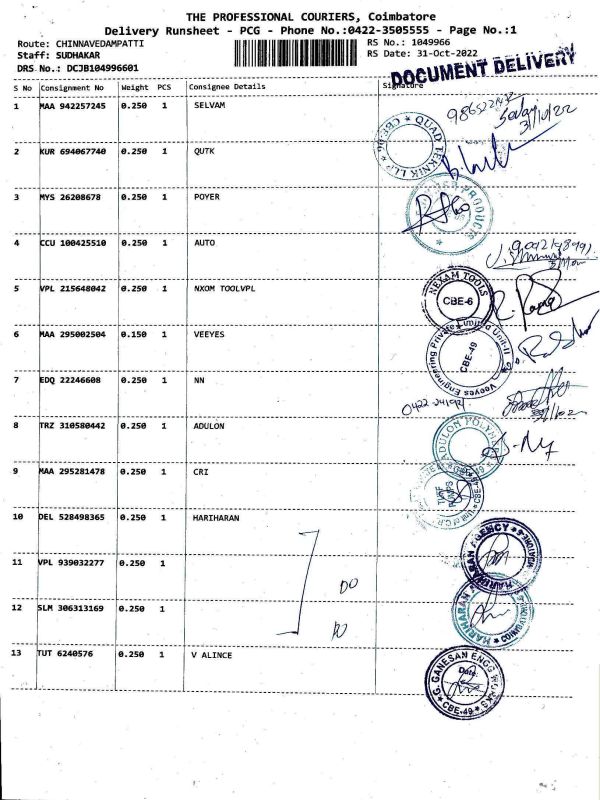 THE PROFESSIONAL COURIERS, Coimbatore
Delivery Runsheet - PCG - Phone No.:0422-3505555 - Page No.:1
Route: CHINNAVEDAMPATTI
RS No.: 1049966
Staff: SUDHAKAR
RS Date: 31-Oct-2022
DRS No.: DCJB104996601
DOCUMENT DELIVERY
S No Consignment No Weight PCS Consignee Details Signature
1 MAA 942257245 0.250 1 SELVAM
31/10/22
2 KUR 694067740 0.250 1 QUTK
QUAD TEKNIK LLP * CBE-06 *
3 MYS 26208678 0.250 1 POYER
PRODUCTS
4 CCU 100425510 0.250 1 AUTO
5 VPL 215648042 0.250 1 NXOM TOOLVPL
NEXAM TOOLS
CBE-6
6 MAA 295002504 0.150 1 VEEYES
Veeyes Engineering Private Limited Unit-II
CBE-49
7 EDQ 22246608 0.250 1 NN
8 TRZ 310580442 0.250 1 ADULON
ADULON POLYMERS
9 MAA 295281478 0.250 1 CRI
10 DEL 528498365 0.250 1 HARIHARAN
HARIHARAN AGENCY
11 VPL 939032277 0.250 1
DO
12 SLM 306313169 0.250 1
HARIHARAN
DO
13 TUT 6240576 0.250 1 V ALINCE
G. GANESAN ENGG WORKS
Date:
CBE-49